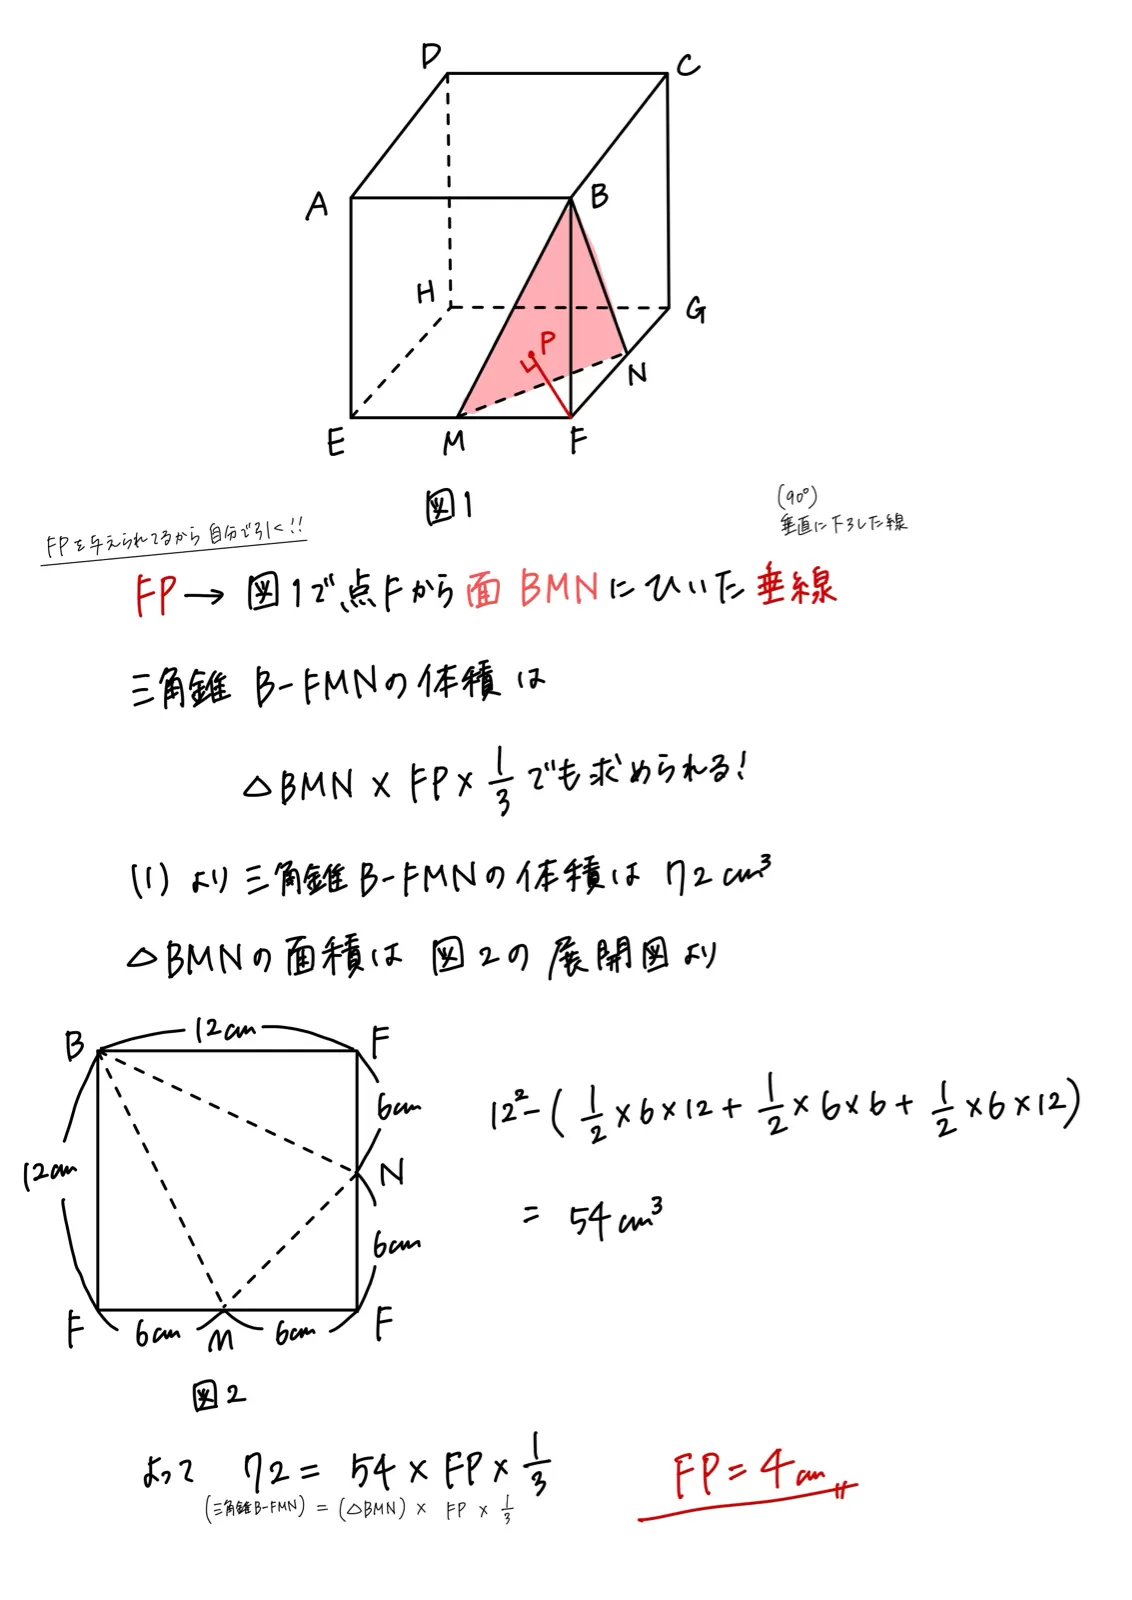 D
C
A
B
H
G
P
N
E
M
F
図1
(90°)
垂直に下ろした線
FPを与えられてるから自分で引く!!
FP→ 図1で点Fから面BMNにひいた垂線
三角錐 B-FMNの体積は
△BMN × FP × 1/3 でも求められる!
(1)より三角錐B-FMNの体積は 72cm³
△BMNの面積は 図2の展開図より
12cm
B
F
6cm
12²-(1/2×6×12+1/2×6×6+1/2×6×12)
12cm
N
= 54cm³
6cm
F
6cm
M
6cm
F
図2
よって 72 = 54 × FP × 1/3
FP=4cm
(三角錐B-FMN) = (△BMN) × FP × 1/3